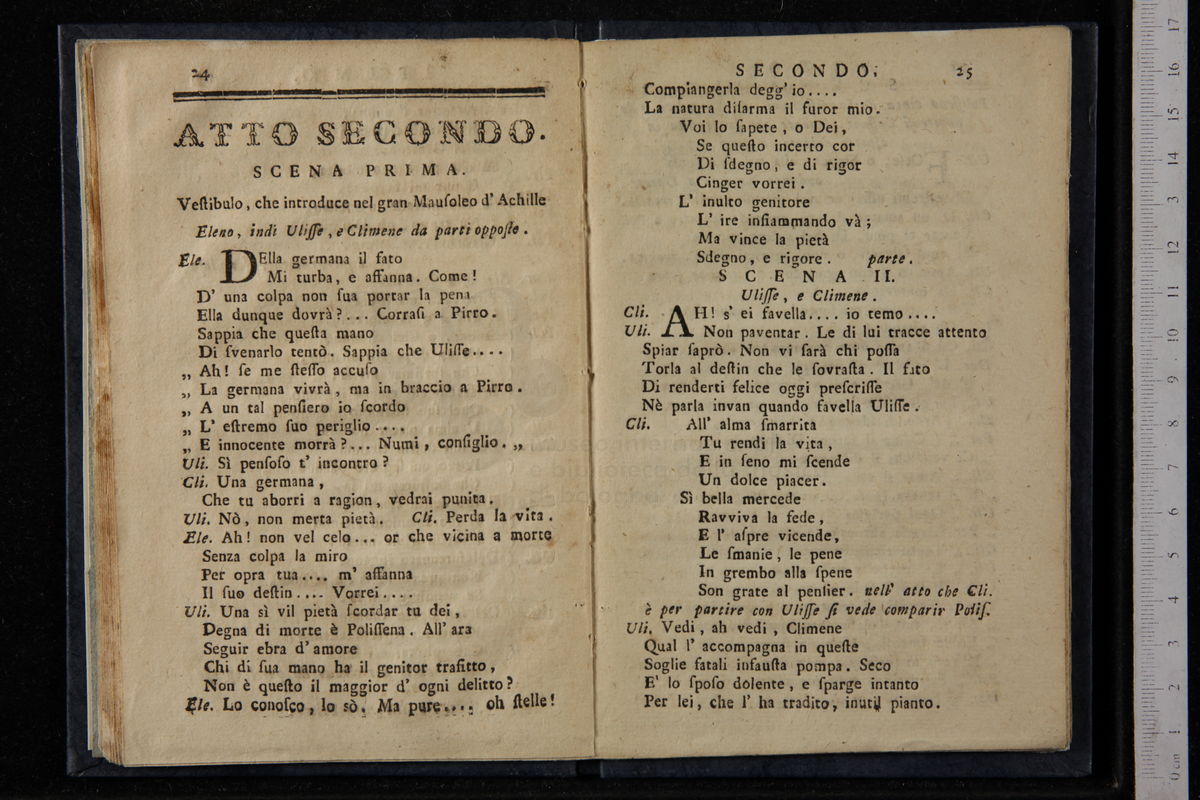 24
ATTO SECONDO.
SCENA PRIMA.
Veſtibulo, che introduce nel gran Mauſoleo d' Achille
Eleno, indi Uliſſe, e Climene da parti oppoſte.
Ele. DElla germana il fato
Mi turba, e affanna. Come!
D' una colpa non ſua portar la pena
Ella dunque dovrà?... Corraſi a Pirro.
Sappia che queſta mano
Di ſvenarlo tentò. Sappia che Uliſſe....
„ Ah! ſe me ſteſſo accuſo
„ La germana vivrà, ma in braccio a Pirro.
„ A un tal penſiero io ſcordo
„ L' eſtremo ſuo periglio....
„ E innocente morrà?... Numi, conſiglio. „
Uli. Sì penſoſo t' incontro?
Cli. Una germana,
Che tu aborri a ragion, vedrai punita.
Uli. Nò, non merta pietà. Cli. Perda la vita.
Ele. Ah! non vel celo... or che vicina a morte
Senza colpa la miro
Per opra tua.... m' affanna
Il ſuo deſtin.... Vorrei....
Uli. Una sì vil pietà ſcordar tu dei,
Degna di morte è Poliſſena. All' ara
Seguir ebra d' amore
Chi di ſua mano ha il genitor trafitto,
Non è queſto il maggior d' ogni delitto?
Ele. Lo conoſco, lo sò. Ma pure.... oh ſtelle!
SECONDO. 25
Compiangerla degg' io....
La natura diſarma il furor mio.
Voi lo ſapete, o Dei,
Se queſto incerto cor
Di ſdegno, e di rigor
Cinger vorrei.
L' inulto genitore
L' ire infiammando và;
Ma vince la pietà
Sdegno, e rigore. parte.
SCENA II.
Uliſſe, e Climene.
Cli. AH! s' ei favella.... io temo....
Uli. Non paventar. Le di lui tracce attento
Spiar ſaprò. Non vi ſarà chi poſſa
Torla al deſtin che le ſovraſta. Il fato
Di renderti felice oggi preſcriſſe
Nè parla invan quando favella Uliſſe.
Cli. All' alma ſmarrita
Tu rendi la vita,
E in ſeno mi ſcende
Un dolce piacer.
Sì bella mercede
Ravviva la fede,
E l' aſpre vicende,
Le ſmanie, le pene
In grembo alla ſpene
Son grate al penſier. nell' atto che Cli.
è per partire con Uliſſe ſi vede comparir Poliſ.
Uli. Vedi, ah vedi, Climene
Qual l' accompagna in queſte
Soglie fatali infauſta pompa. Seco
E' lo ſpoſo dolente, e ſparge intanto
Per lei, che l' ha tradito, inutil pianto.